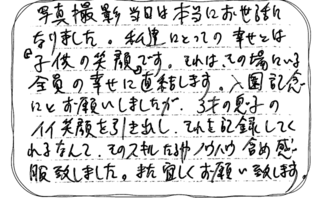 写真撮影当日は本当にお世話に
なりました。私達にとっての幸せとは
『子供の笑顔』です。それは、その場にいる
全員の幸せに直結します。入園記念
にとお願いしましたが、3才の息子の
イイ笑顔を引き出し、それを記録してく
れるなんて、そのスキルたるやノウハウ含め感
服致しました。また宜しくお願い致します。